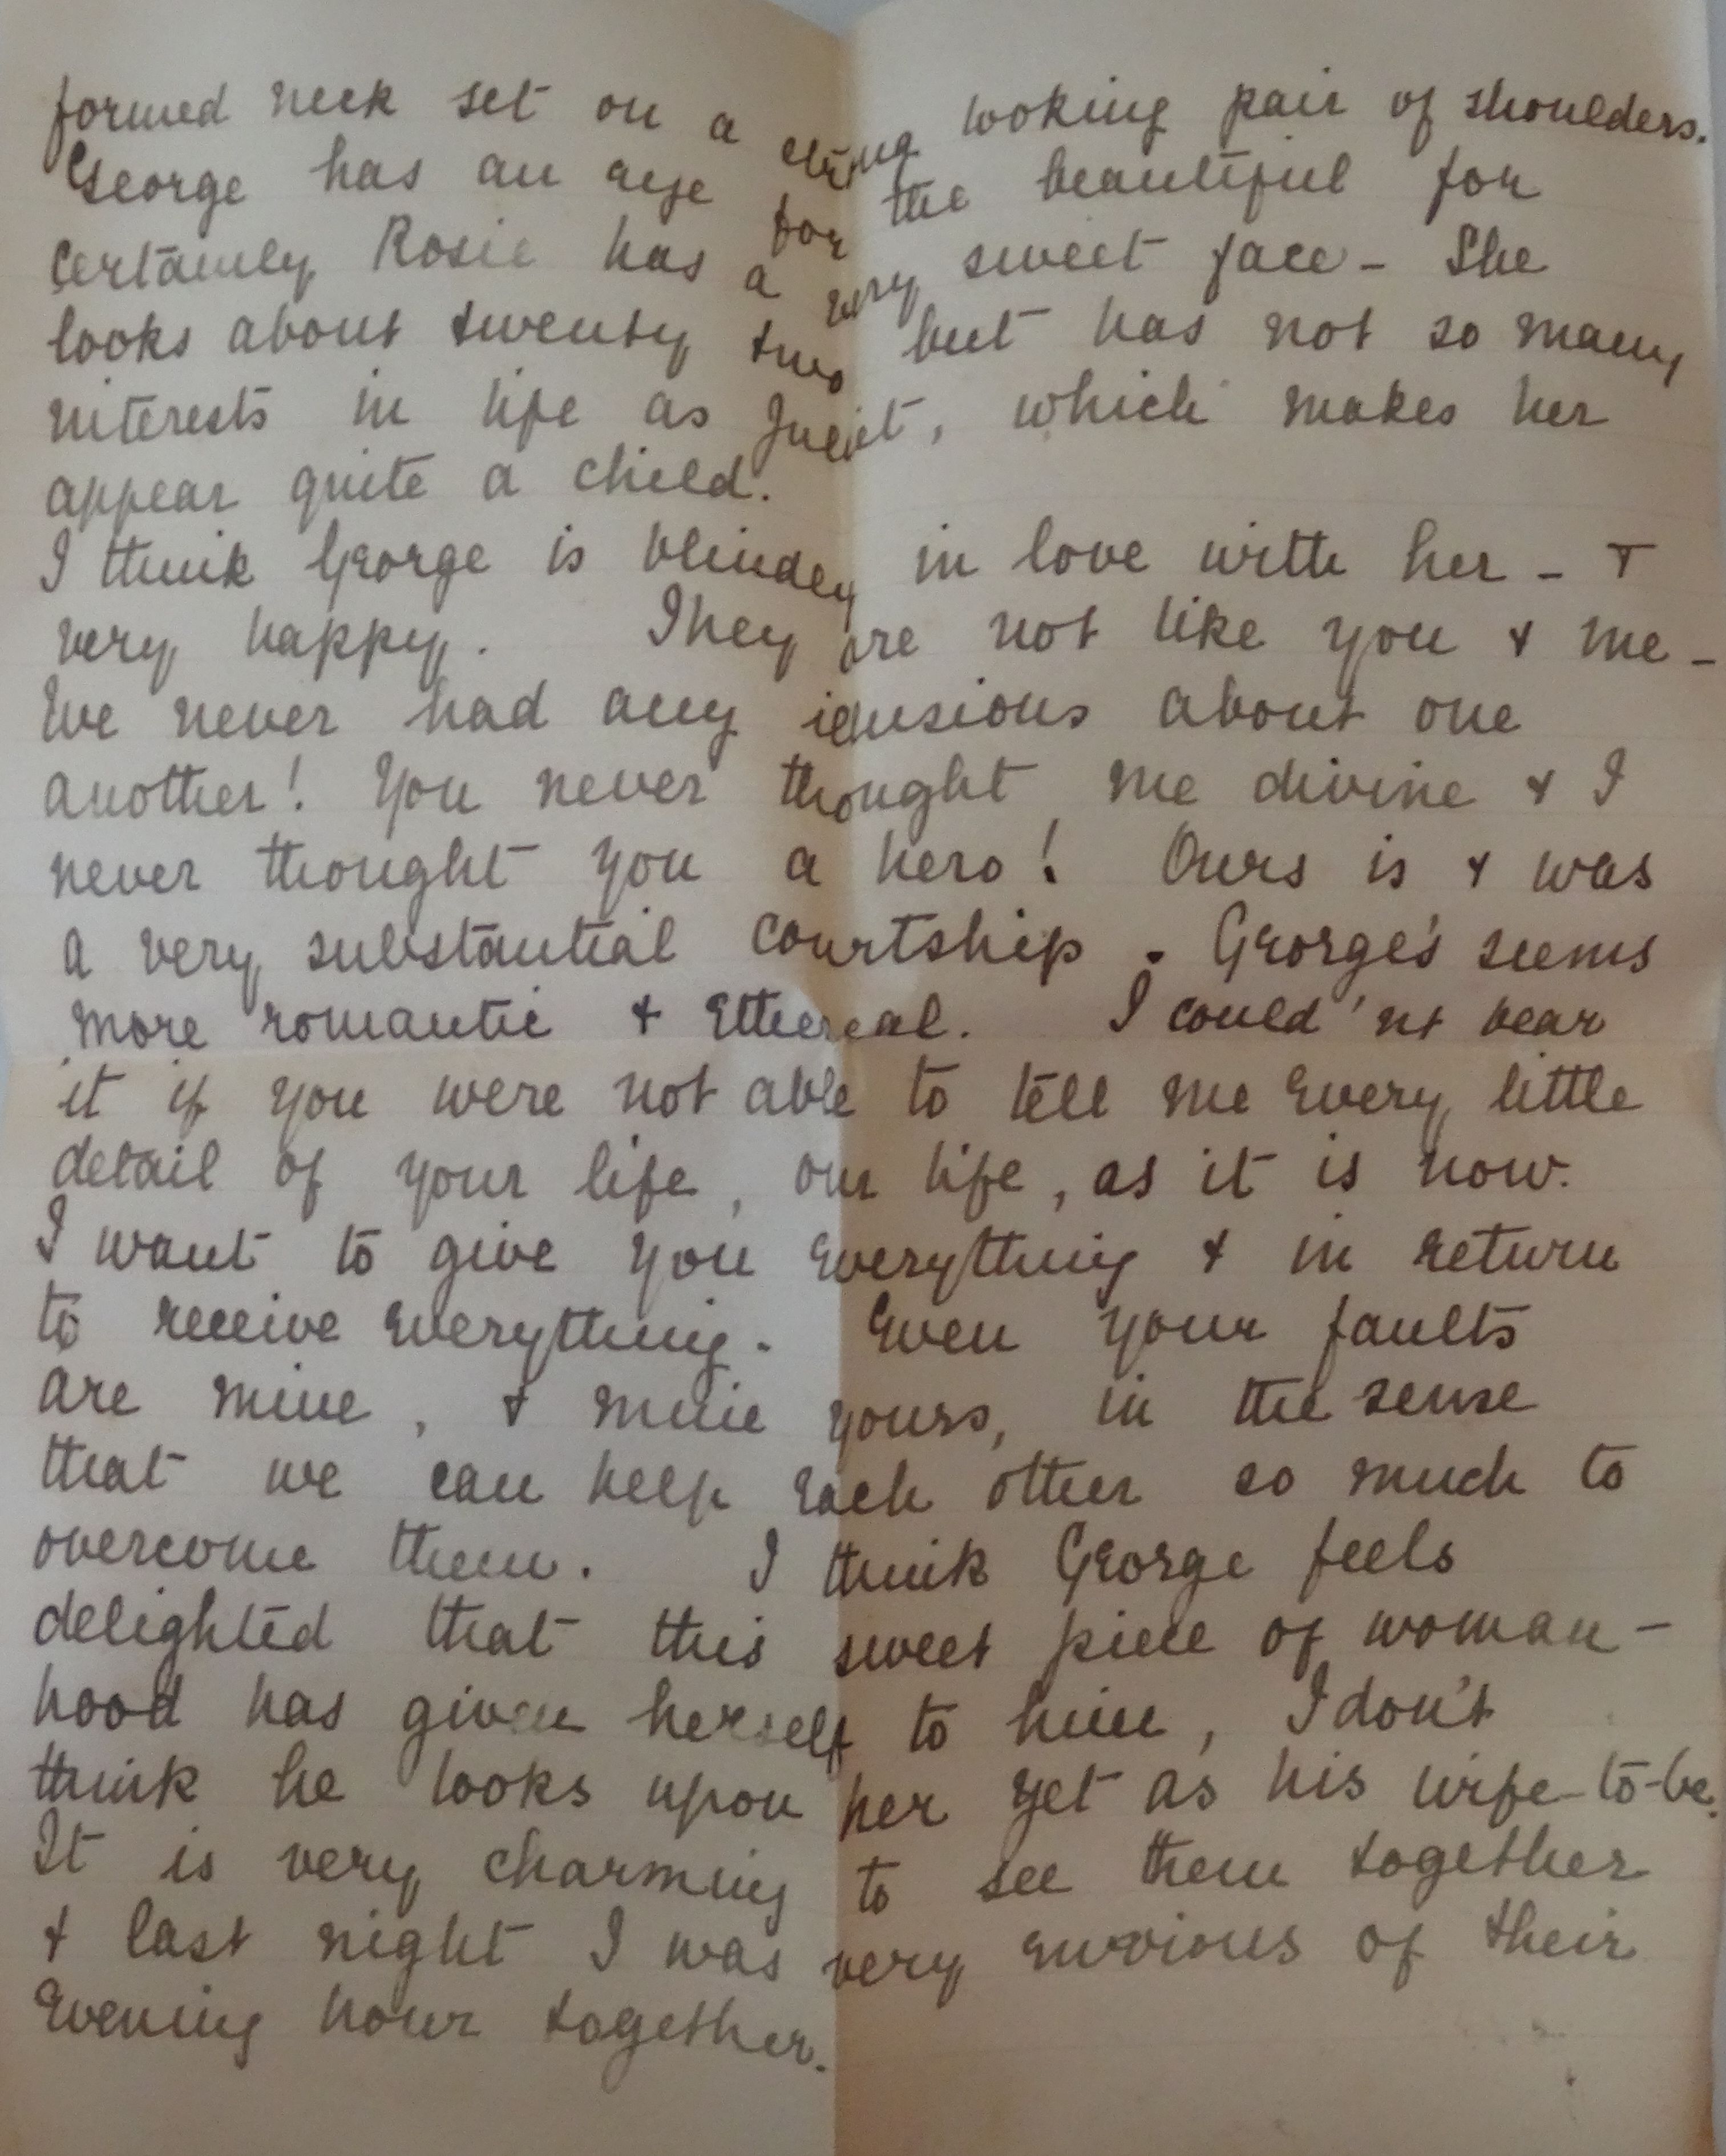 formed neck set on a looking pair of shoulders.
George has an eye for the beautiful for
certainly Rosie has a very sweet face - She
looks about twenty two but has not so many
interests in life as Juliet, which makes her
appear quite a child.
I think George is blindly in love with her - &
very happy. They are not like you & me -
We never had any illusions about one
another! You never thought me divine & I
never thought you a hero! Ours is & was
a very substantial courtship. George's seems
more romantic & Ethereal. I could'nt bear
it if you were not able to tell me every little
detail of your life, our life, as it is now.
I want to give you everything & in return
to receive everything. Even your faults
are mine, & mine yours, in the sense
that we can help each other so much to
overcome them. I think George feels
delighted that this sweet piece of woman-
hood has given herself to him, I don't
think he looks upon her yet as his wife-to-be.
It is very charming to see them together
& last night I was very envious of their
Evening hour together.